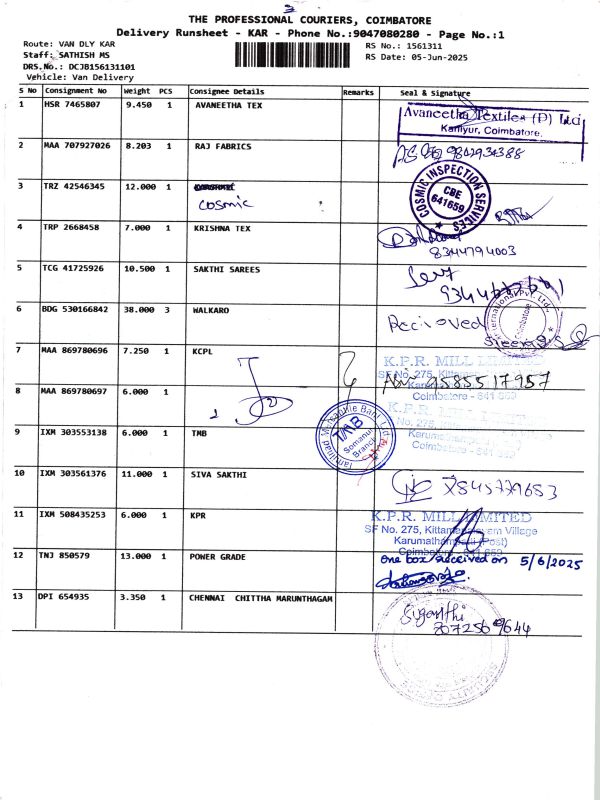 3
THE PROFESSIONAL COURIERS, COIMBATORE
Delivery Runsheet - KAR - Phone No.:9047080280 - Page No.:1
Route: VAN DLY KAR
RS No.: 1561311
Staff: SATHISH MS
RS Date: 05-Jun-2025
DRS.No.: DCJB156131101
Vehicle: Van Delivery
S No Consignment No Weight PCS Consignee Details Remarks Seal & Signature
1 HSR 7465807 9.450 1 AVANEETHA TEX
Avaneetha Textiles (P) Ltd
Kaniyur, Coimbatore.
2 MAA 707927026 8.203 1 RAJ FABRICS
3 TRZ 42546345 12.000 1
cosmic
COSMIC INSPECTION SERVICES
CBE
641659
4 TRP 2668458 7.000 1 KRISHNA TEX
8344794003
5 TCG 41725926 10.500 1 SAKTHI SAREES
6 BDG 530166842 38.000 3 WALKARO
Recieved
International Pvt. Ltd.
Coimbatore
7 MAA 869780696 7.250 1 KCPL
K.P.R. MILL LIMITED
SF No. 275,
Coimbatore - 641 659
8 MAA 869780697 6.000 1
9 IXM 303553138 6.000 1 TMB
Tamilnad Mercantile Bank Ltd.
TMB
Somanur
Branch
No. 275, Kittampalayam Village
Coimbatore - 641 659
10 IXM 303561376 11.000 1 SIVA SAKTHI
7845779653
11 IXM 508435253 6.000 1 KPR
K.P.R. MILL LIMITED
SF No. 275, Kittampalayam Village
Karumathampatti (Post)
Coimbatore - 641 659
12 TNJ 850579 13.000 1 POWER GRADE
One box received on 5/6/2025
13 DPI 654935 3.350 1 CHENNAI CHITTHA MARUNTHAGAM
Suganthi